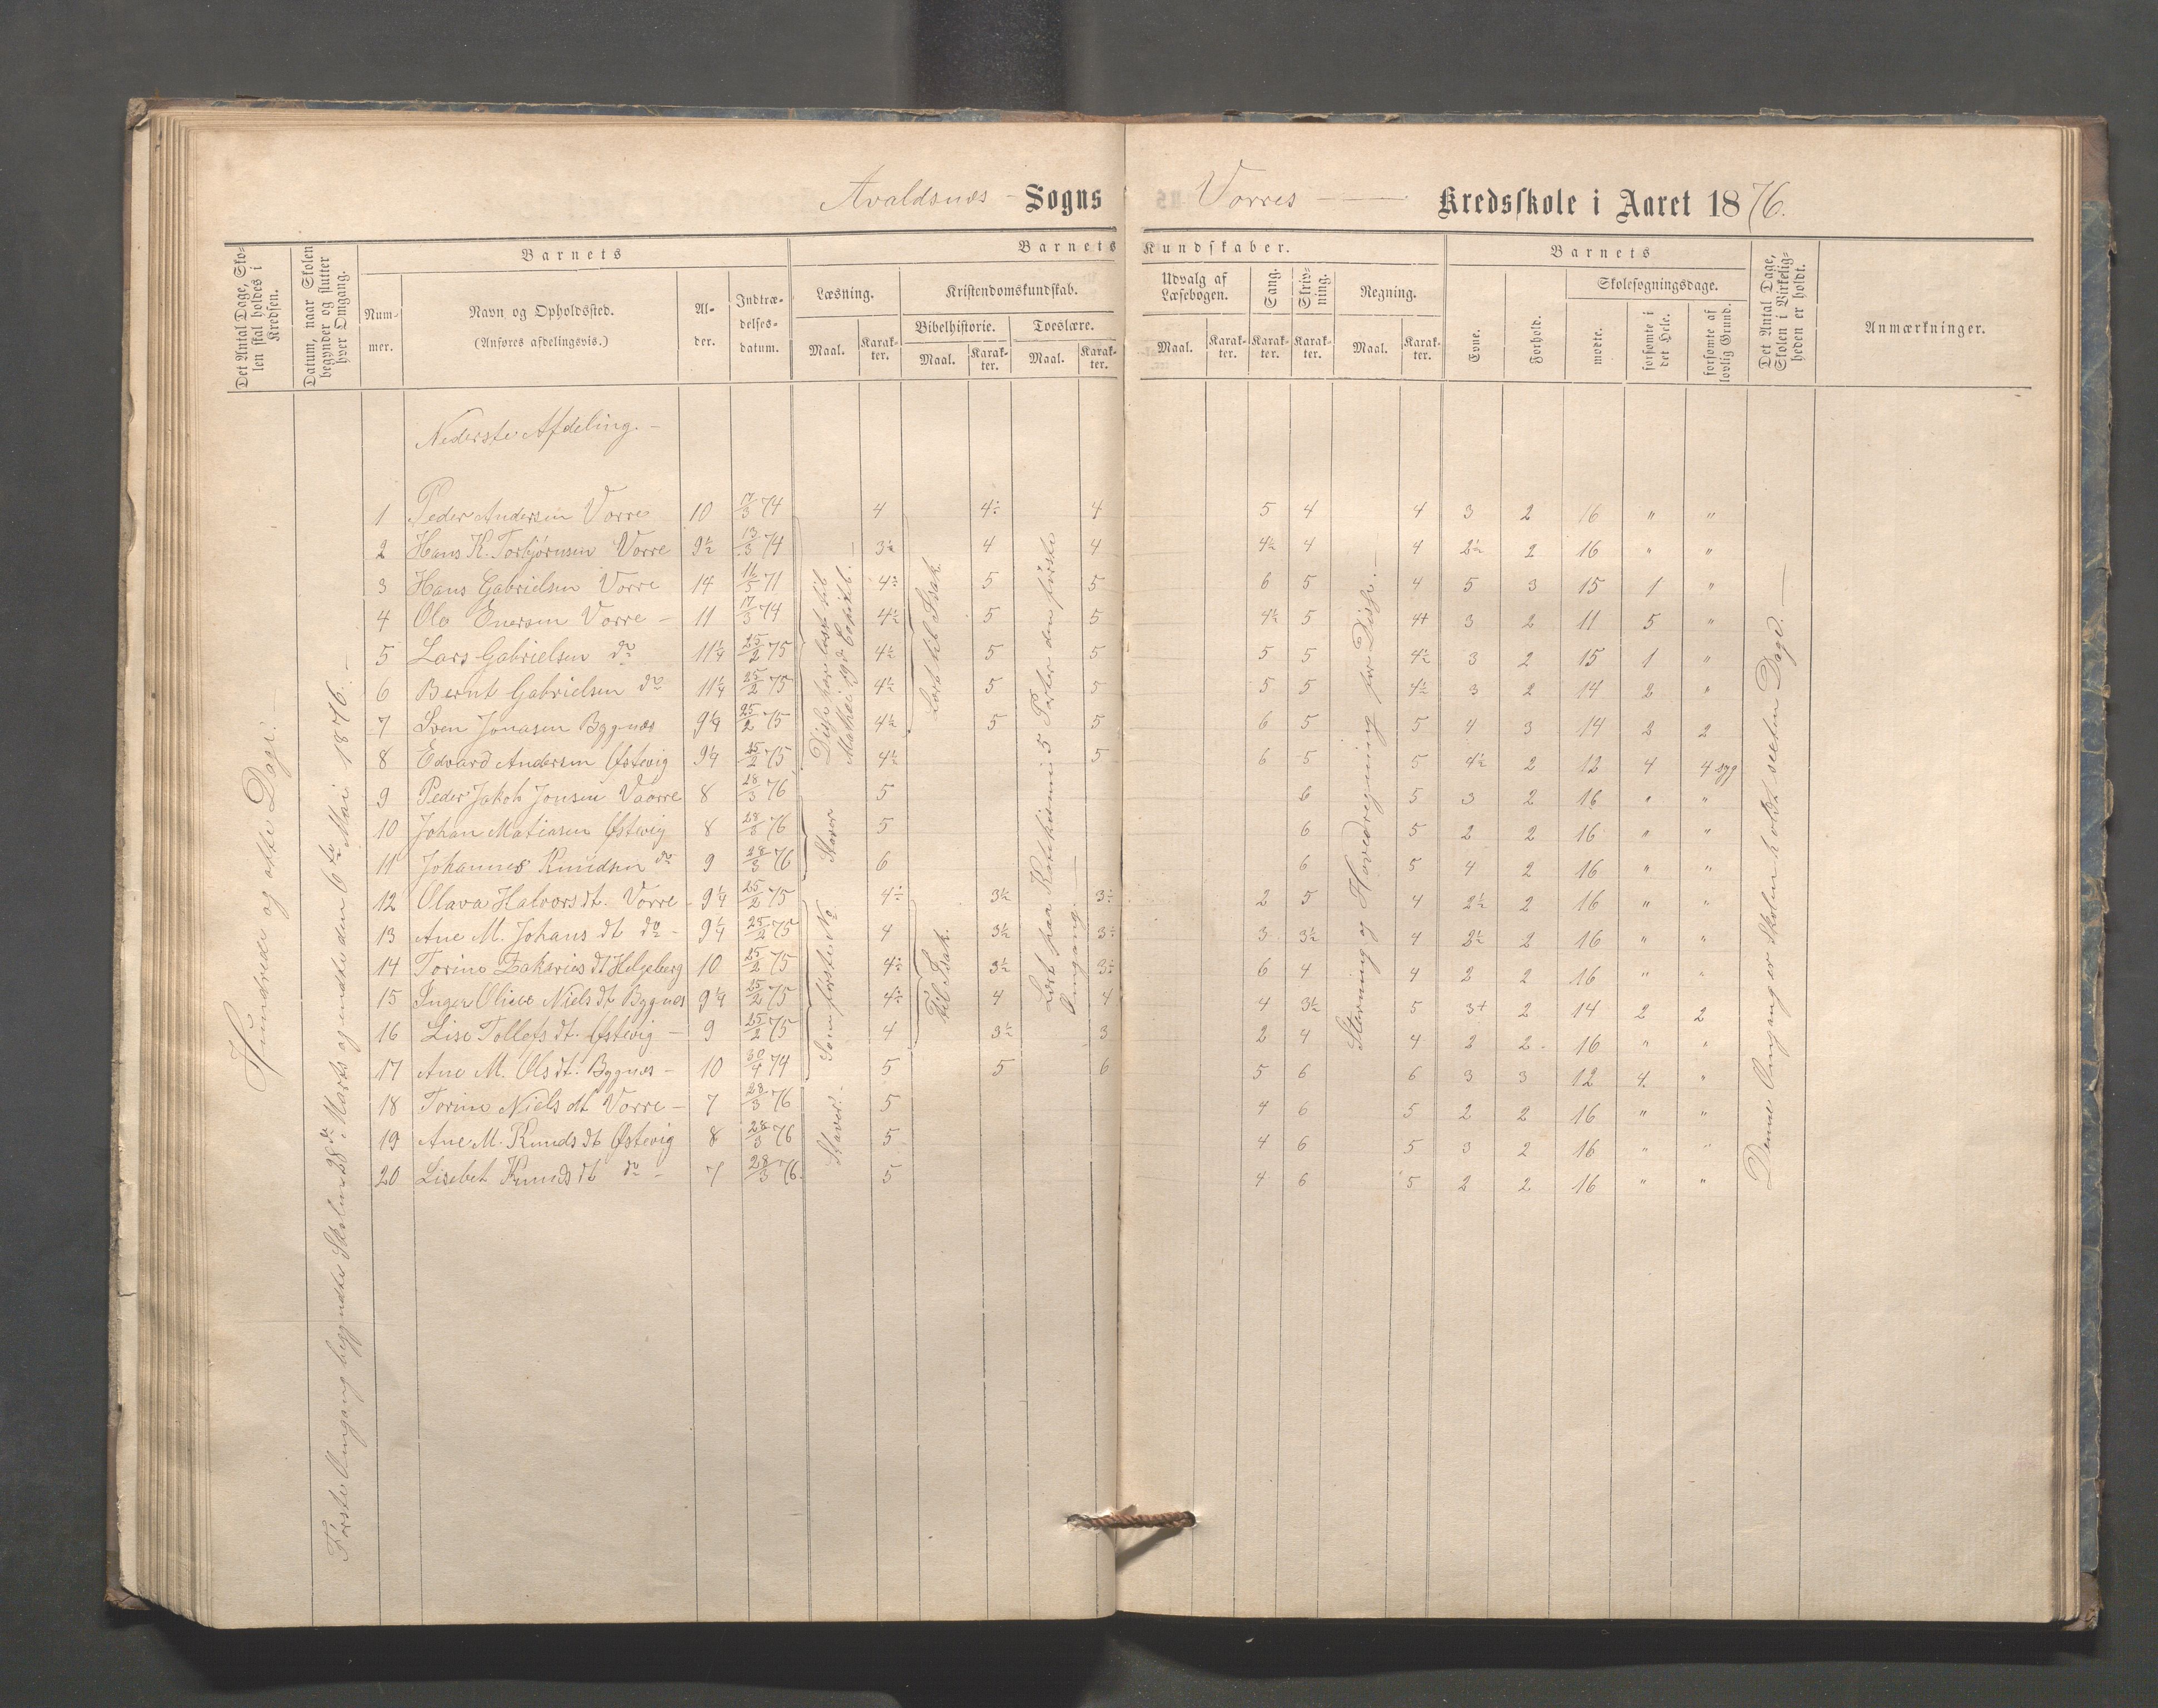 Avaldsnes Sogns Vorres Kredsskole i Aaret 1876.
Det Antal Dage, Skolen skal holdes i Kredsen.
Datum, naar Skolen begynder og slutter hver Omgang.
Barnets
Nummer.
Navn og Opholdssted.
(Anføres afdelingsvis.)
Alder.
Indtrædelsesdatum.
Barnets Kundskaber.
Læsning.
Maal. Karakter.
Kristendomskundskab.
Bibelhistorie.
Maal. Karakter.
Troeslære.
Maal. Karakter.
Udvalg af Læsebogen.
Maal. Karakter.
Sang.
Karakter.
Skrivning.
Karakter.
Regning.
Maal. Karakter.
Barnets
Evne.
Forhold.
Skolesøgningsdage.
mødte.
forsømte i det Hele.
forsømte af lovlig Grund.
Det Antal Dage, Skolen i Virkeligheden er holdt.
Anmærkninger.
Hundrede og otte Dage. —
Første Omgang begyndte Skolen 28de Marts og endte den 6te Mai 1876. —
Nederste Afdeling. —
1 Peder Andersen Vorre 10 17/3 74 4 4÷ 4 5 4 4 3 2 16 " "
2 Hans K. Torbjørnsen Vorre 9½ 13/3 74 3½ 4 4 4½ 4 4 2½ 2 16 " "
3 Hans Gabrielsen Vorre 14 11/5 71 4÷ 5 5 6 5 4 5 3 15 1 "
4 Ole Enersen Vorre — 11 17/3 74 4½ 5 5 4½ 5 4+ 3 2 11 5 "
5 Lars Gabrielsen do 11¼ 25/2 75 4½ 5 5 5 5 4½ 3 2 15 1 "
6 Bernt Gabrielsen do 11¼ 25/2 75 4½ 5 5 5 5 4½ 3 2 14 2 "
7 Sven Jonasen Bygnæs 9¼ 25/2 75 4½ 5 5 6 5 5 4 3 14 2 2
8 Edvard Andersen Østevig 9¼ 25/2 75 4½ 5 6 5 5 4½ 2 12 4 4 syg
9 Peder Jakob Jonsen Vaorre 8 28/3 76 5 6 5 3 2 16 " "
10 Johan Matiasen Østevig 8 28/3 76 5 6 5 2 2 16 " "
11 Johannes Knudsen do 9 28/3 76 6 6 5 4 2 16 " "
12 Olava Halvorsdt. Vorre 9¼ 25/2 75 4÷ 3½ 3÷ 2 5 4 2½ 2 16 " "
13 Ane M. Johansdt do — 9¼ 25/2 75 4 3½ 3÷ 3 3½ 4 2½ 2 16 " "
14 Torine Zakariesdt Helgeberg 10 25/2 75 4÷ 3½ 3÷ 6 4 4 2 2 16 " "
15 Inger Oliee Nielsdt Bygnes 9¼ 25/2 75 4÷ 4 4 4 3½ 5 3+ 2 14 2 2
16 Lise Tollefsdt. Østevig — 9 25/2 75 4 3½ 3 2 4 4 2 2 16 " "
17 Ane M. Olsdt. Bygnæs — 10 30/4 74 5 5 6 5 6 6 3 3 12 4 "
18 Torine Nielsdt Vorre — 7 28/3 76 5 4 6 5 2 2 16 " "
19 Ane M. Knudsdt Østevig 8 28/3 76 5 4 6 5 3 2 16 " "
20 Lisebet Knudsdt do — 7 28/3 76 5 4 6 5 2 2 16 " "
Disse have læst til Mathæi 19de Capitel. —
Staver
Som første No
Staver.
Lært til Isak.
Til Isak.
Læst paa Katekismi 5 Parter den første Omgang. —
Skrivning og Hovedregning for Disse. —
Denne Omgang er Skolen holdt sexten Dage. —